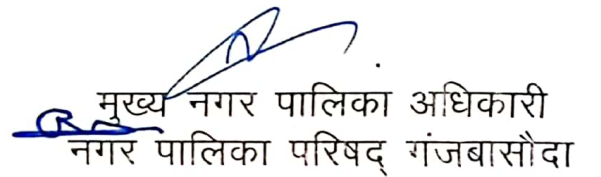 मुख्य नगर पालिका अधिकारी
नगर पालिका परिषद् गंजबासौदा